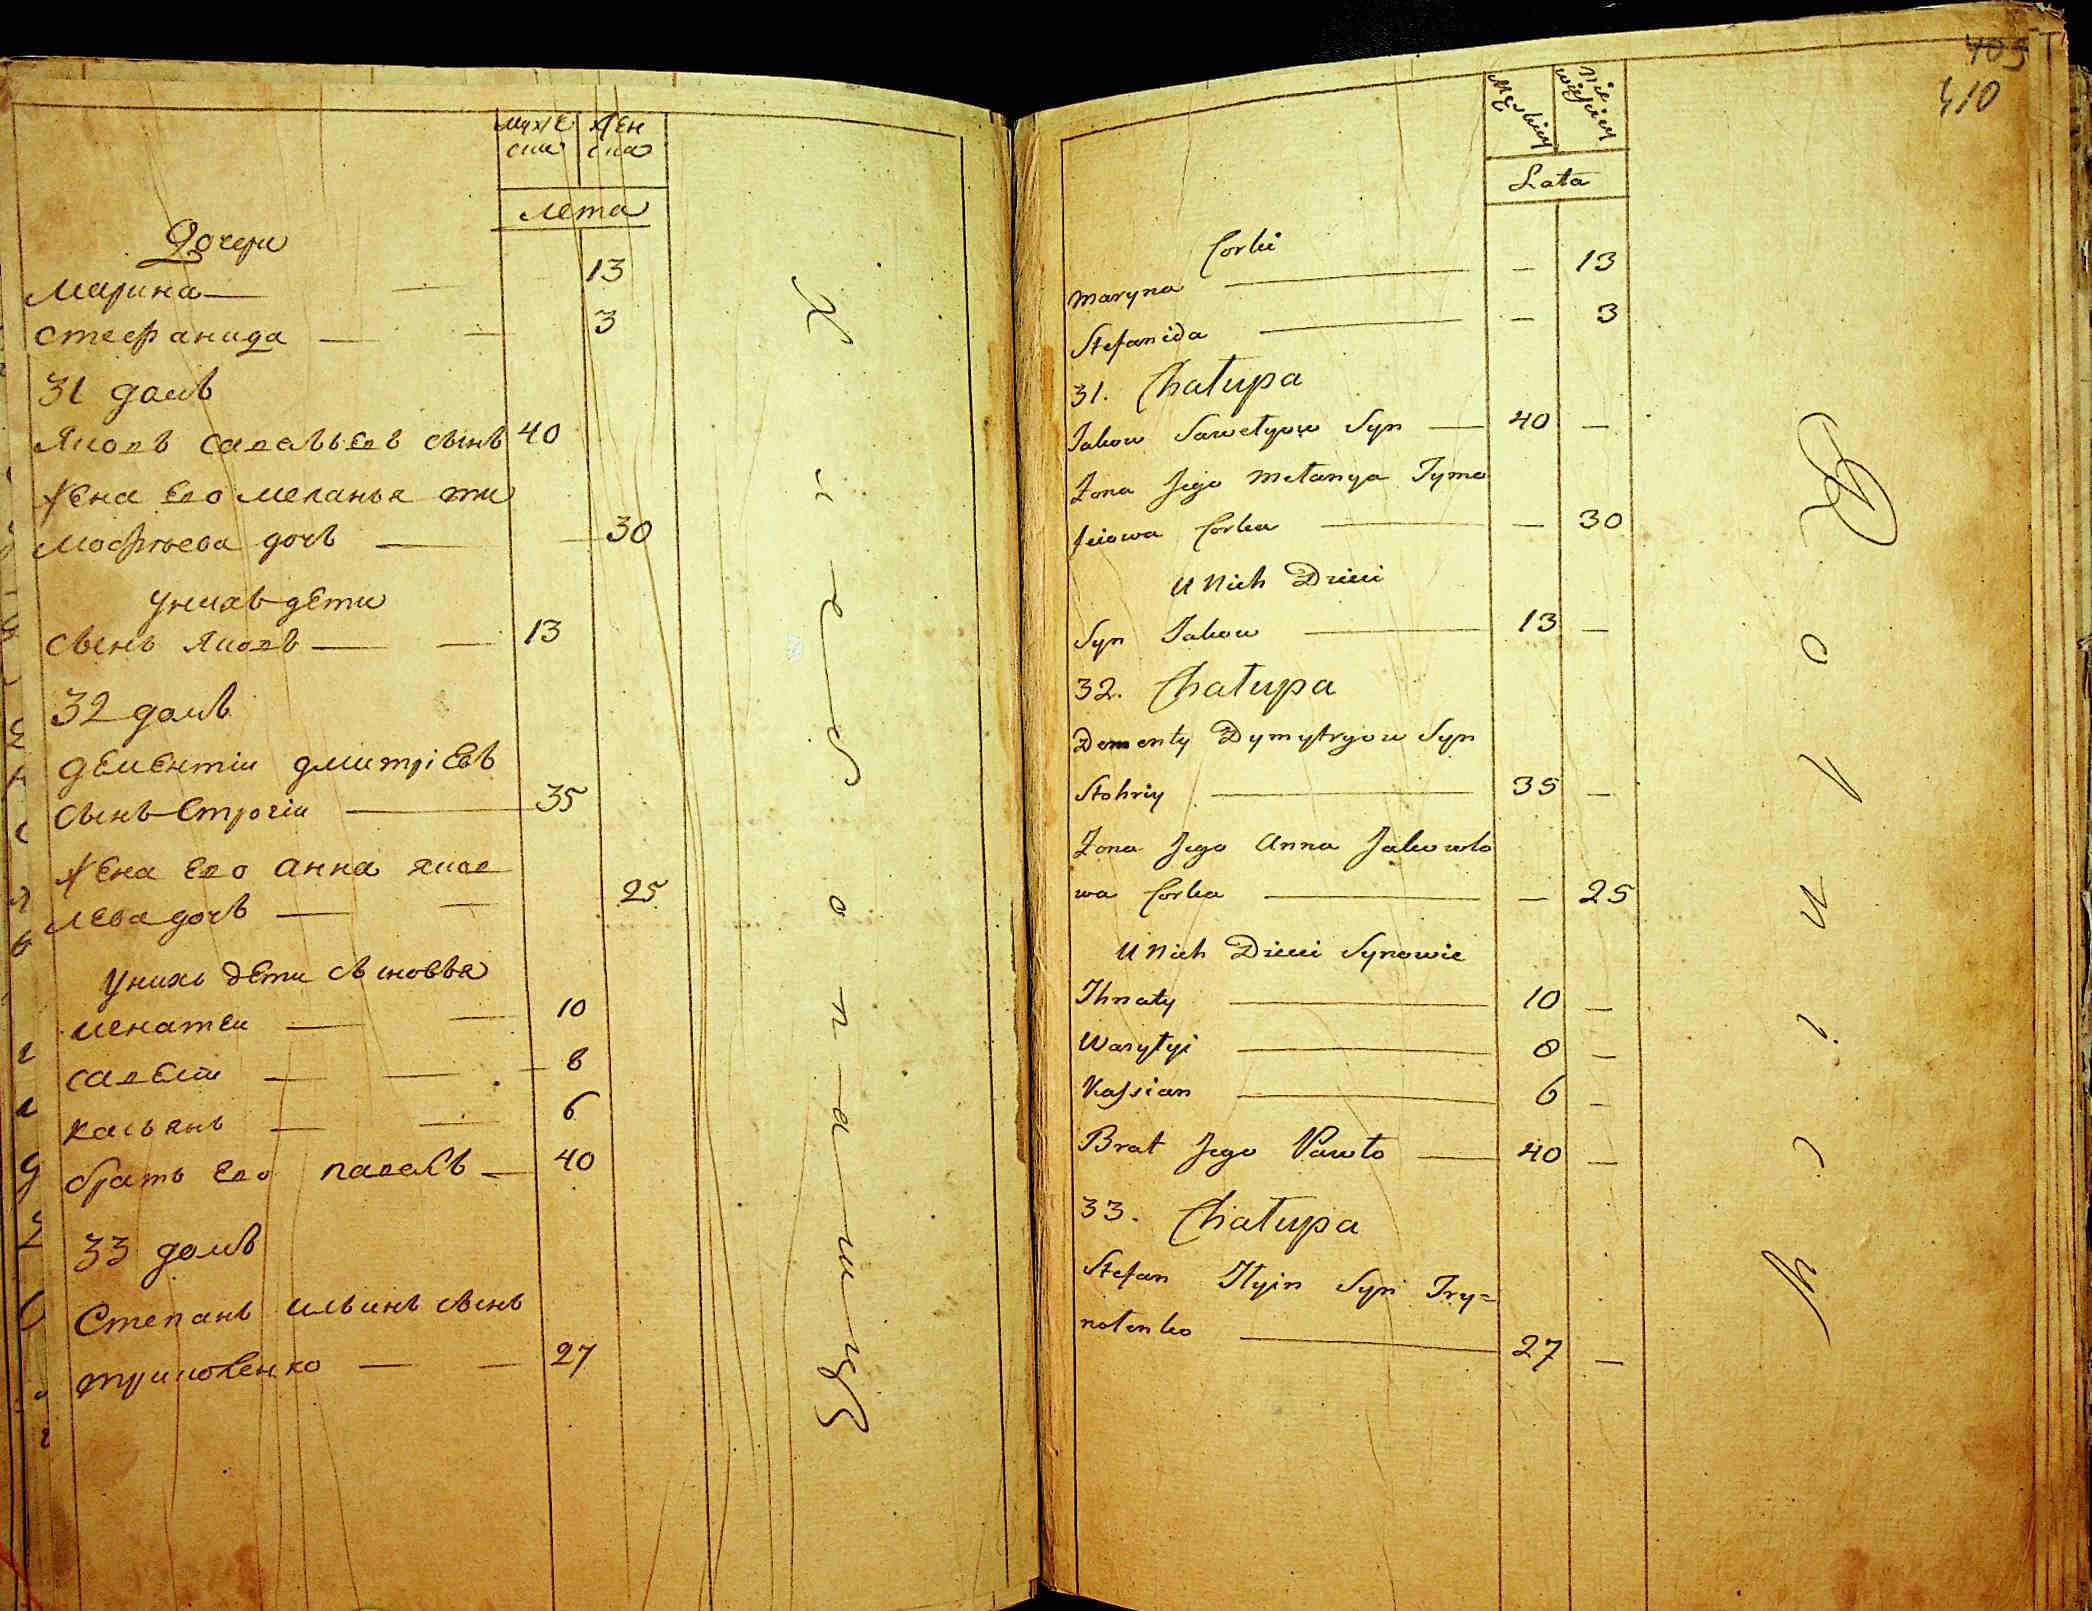 муже жен
ска ска
лета
Дочери
Марина — — 13
стефанида — — 3
31 домъ
Яковъ савельевъ сынъ 40
жена его меланья ти
мофѣева дочь — — 30
у нихъ дети
сынъ Яковъ — — 13
32 домъ
дементіи дмитріевъ
сынъ Строгіи — 35
жена его анна яков
лева дочь — — 25
у нихъ дети сыновья
игнатеи — — 10
савелии — — — 8
касьянъ — — 6
братъ его павелъ — 40
33 домъ
Степанъ ильинъ сынъ
— — 27
405
410
Męskiey
Niewieściey
Lata
Corki
Maryna — — 13
Stefanida — — 3
31. Chałupa
Jakow Sawełyow Syn — 40 —
Żona Jego Mełanya Tymo
feiowa Corka — — 30
U Nich Dzieci
Syn Jakow — 13 —
32. Chałupa
Dementy Dymytryow Syn
Stohriy — 35 —
Żona Jego Anna Jakowlo
wa Corka — — 25
U Nich Dzieci Synowie
Ihnaty — 10 —
8 —
Kassian — 6 —
Brat Jego Pawło — 40 —
33. Chałupa
Stefan Ilyin Syn Try=
— 27 —